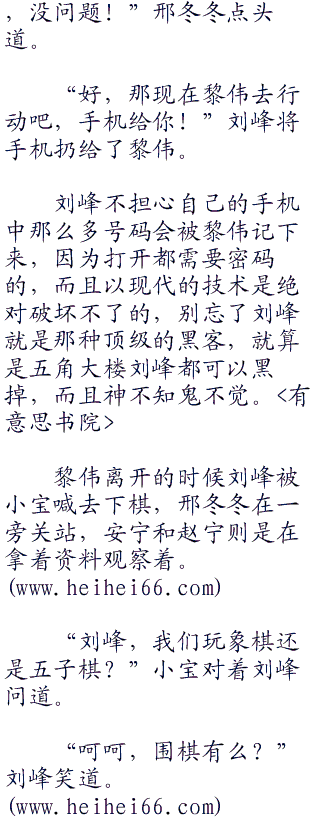 ，没问题！”邢冬冬点头
道。
“好，那现在黎伟去行
动吧，手机给你！”刘峰将
手机扔给了黎伟。
刘峰不担心自己的手机
中那么多号码会被黎伟记下
来，因为打开都需要密码
的，而且以现代的技术是绝
对破坏不了的，别忘了刘峰
就是那种顶级的黑客，就算
是五角大楼刘峰都可以黑
掉，而且神不知鬼不觉。<有
意思书院>
黎伟离开的时候刘峰被
小宝喊去下棋，邢冬冬在一
旁关站，安宁和赵宁则是在
拿着资料观察着。
(www.heihei66.com)
“刘峰，我们玩象棋还
是五子棋？”小宝对着刘峰
问道。
“呵呵，围棋有么？”
刘峰笑道。
(www.heihei66.com)